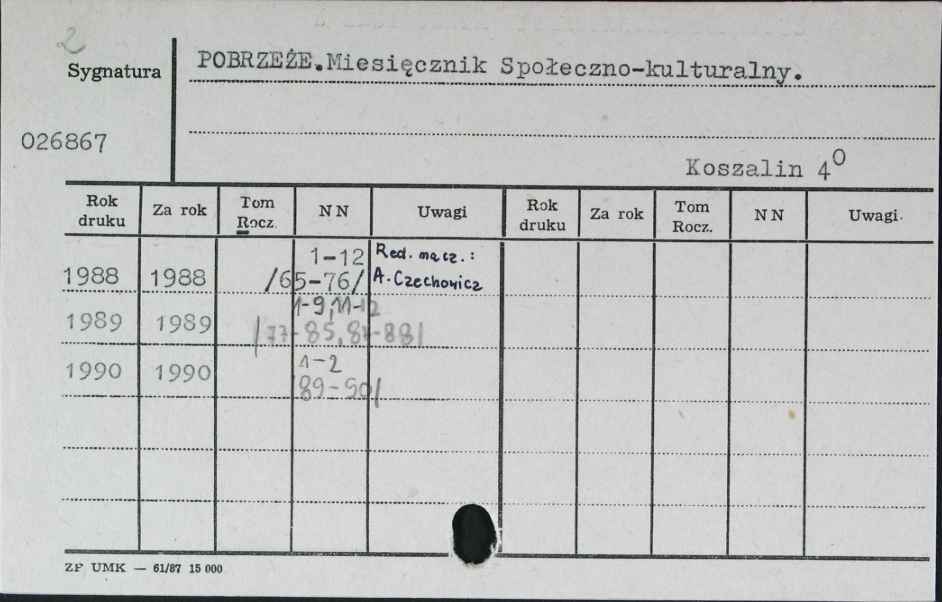 2
Sygnatura
POBRZEŻE.Miesięcznik Społeczno-kulturalny.
026867
Koszalin 4⁰
Rok druku Za rok Tom Rocz. NN Uwagi Rok druku Za rok Tom Rocz. NN Uwagi.
1-12 Red. nacz.:
1988 1988 /65-76/ A. Czechowicz
1-9, 11-12
1989 1989 /77-85, 87-88/
1-2
1990 1990
/89-90/
ZP UMK — 61/87 15 000